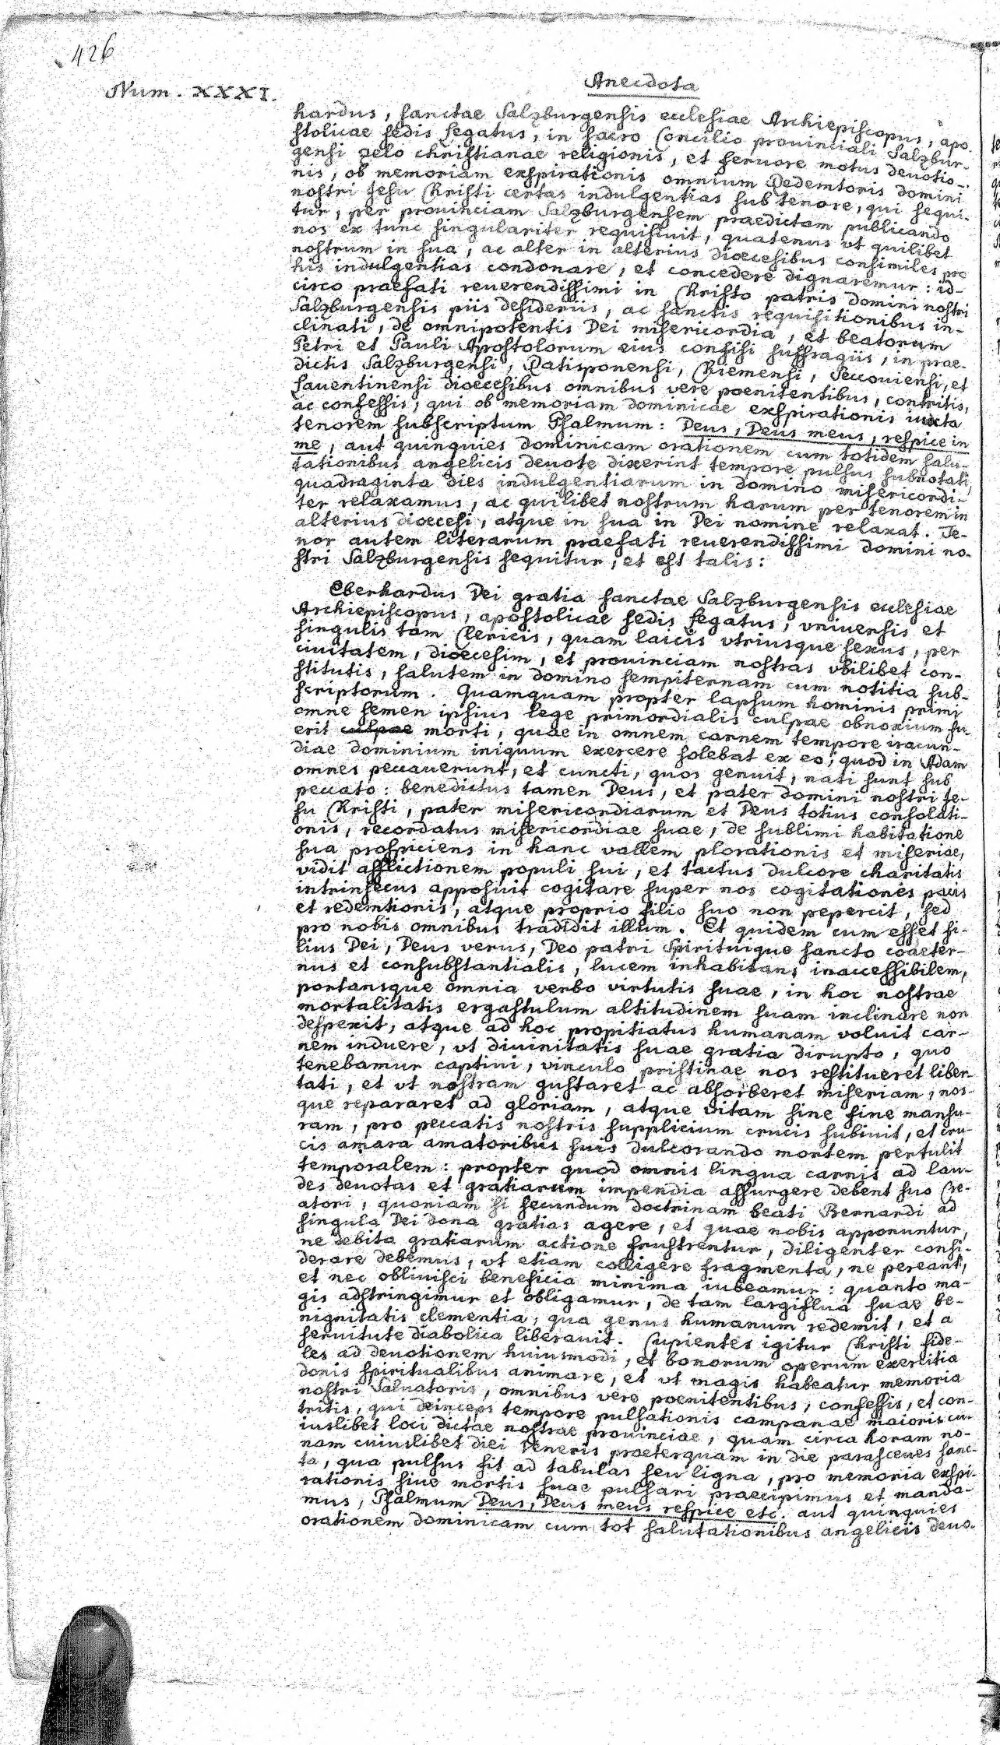 426
Num. XXXI.
Anecdota
hardus, sanctae Salzburgensis ecclesiae Archiepiscopus, apo-
stolicae sedis Legatus, in sacro Concilio prouinciali Salzbur-
gensi zelo christianae religionis, et feruore motus deuotio-
nis, ob memoriam exspirationis omnium Redemtoris domini
nostri Jesu Christi certas indulgentias sub tenore, qui sequi-
tur, per prouinciam Salzburgensem praedictam publicando
nos ex tunc singulariter requisiuit, quatenus vt quilibet
nostrum in sua, ac alter in alterius dioecesibus consimiles pro
his indulgentias condonare, et concedere dignaremur: id-
circo praefati reuerendissimi in Christo patris domini nostri
Salzburgensis piis desideriis, ac sanctis requisitionibus in-
clinati, de omnipotentis Dei misericordia, et beatorum
Petri et Pauli Apostolorum eius confisi suffragiis, in prae-
dictis Salzburgensi, Ratisponensi, Chiemensi, Seccouiensi, et
Lauentinensi dioecesibus omnibus vere poenitentibus, contritis,
ac confessis, qui ob memoriam dominicae exspirationis iuxta
tenorem subscriptum Psalmum: Deus, Deus meus, respice in
me, aut quinquies dominicam orationem cum totidem salu-
tationibus angelicis deuote dixerint tempore pulsus subnotati,
quadraginta dies indulgentiarum in domino misericordi-
ter relaxamus, ac quilibet nostrum harum per tenorem in
alterius dioecesi, atque in sua in Dei nomine relaxat. Te-
nor autem literarum praefati reuerendissimi domini no-
stri Salzburgensis sequitur, et est talis:
Eberhardus Dei gratia sanctae Salzburgensis ecclesiae
Archiepiscopus, apostolicae sedis Legatus, vniuersis et
singulis tam Clericis, quam laicis vtriusque sexus, per
ciuitatem, dioecesim, et prouinciam nostras vbilibet con-
stitutis, salutem in domino sempiternam cum notitia sub-
scriptorum. Quamquam propter lapsum hominis primi
omne semen ipsius lege primordialis culpae obnoxium fu-
erit culpae morti, quae in omnem carnem tempore iracun-
diae dominium iniquum exercere solebat ex eo, quod in Adam
omnes peccauerunt, et cuncti, quos genuit, nati sunt sub
peccato: benedictus tamen Deus, et pater domini nostri Je-
su Christi, pater misericordiarum et Deus totius consolati-
onis, recordatus misericordiae suae, de sublimi habitatione
sua prospiciens in hanc vallem plorationis et miseriae,
vidit afflictionem populi sui, et tactus dulcore charitatis
intrinsecus apposuit cogitare super nos cogitationes pacis
et redemtionis, atque proprio filio suo non pepercit, sed
pro nobis omnibus tradidit illum. Et quidem cum esset fi-
lius Dei, Deus verus, Deo patri Spirituique sancto coaeter-
nus et consubstantialis, lucem inhabitans inaccessibilem,
portansque omnia verbo virtutis suae, in hoc nostrae
mortalitatis ergastulum altitudinem suam inclinare non
despexit, atque ad hoc propitiatus humanam voluit car-
nem induere, vt diuinitatis suae gratia dirupto, quo
tenebamur captiui, vinculo pristinae nos restitueret liber-
tati, et vt nostram gustaret ac absorberet miseriam, nos-
que repararet ad gloriam, atque vitam sine fine mansu-
ram, pro peccatis nostris supplicium crucis subiuit, et cru-
cis amara amatoribus suis dulcorando mortem pertulit
temporalem: propter quod omnis lingua carnis ad lau-
des deuotas et gratiarum impendia assurgere debent suo Cre-
atori, quoniam si secundum doctrinam beati Bernardi ad
singula Dei dona gratias agere, et quae nobis apponuntur,
ne debita gratiarum actione frustrentur, diligenter consi-
derare debemus, vt etiam colligere fragmenta, ne pereant,
et nec obliuisci beneficia minima iubeamur: quanto ma-
gis adstringimur et obligamur, de tam largiflua suae be-
nignitatis clementia, qua genus humanum redemit, et a
seruitute diabolica liberauit. Cupientes igitur Christi fide-
les ad deuotionem huiusmodi, et bonorum operum exercitia
donis spiritualibus animare, et vt magis habeatur memoria
nostri Saluatoris, omnibus vere poenitentibus, confessis, et con-
tritis, qui deinceps tempore pulsationis campanae maioris cu-
iuslibet loci dictae nostrae prouinciae, quam circa horam no-
nam cuiuslibet diei Veneris praeterquam in die parasceues sanc-
ta, qua pulsus fit ad tabulas seu ligna, pro memoria exspi-
rationis siue mortis suae pulsari praecipimus et manda-
mus, Psalmum Deus, Deus meus respice etc. aut quinquies
orationem dominicam cum tot salutationibus angelicis deuo-